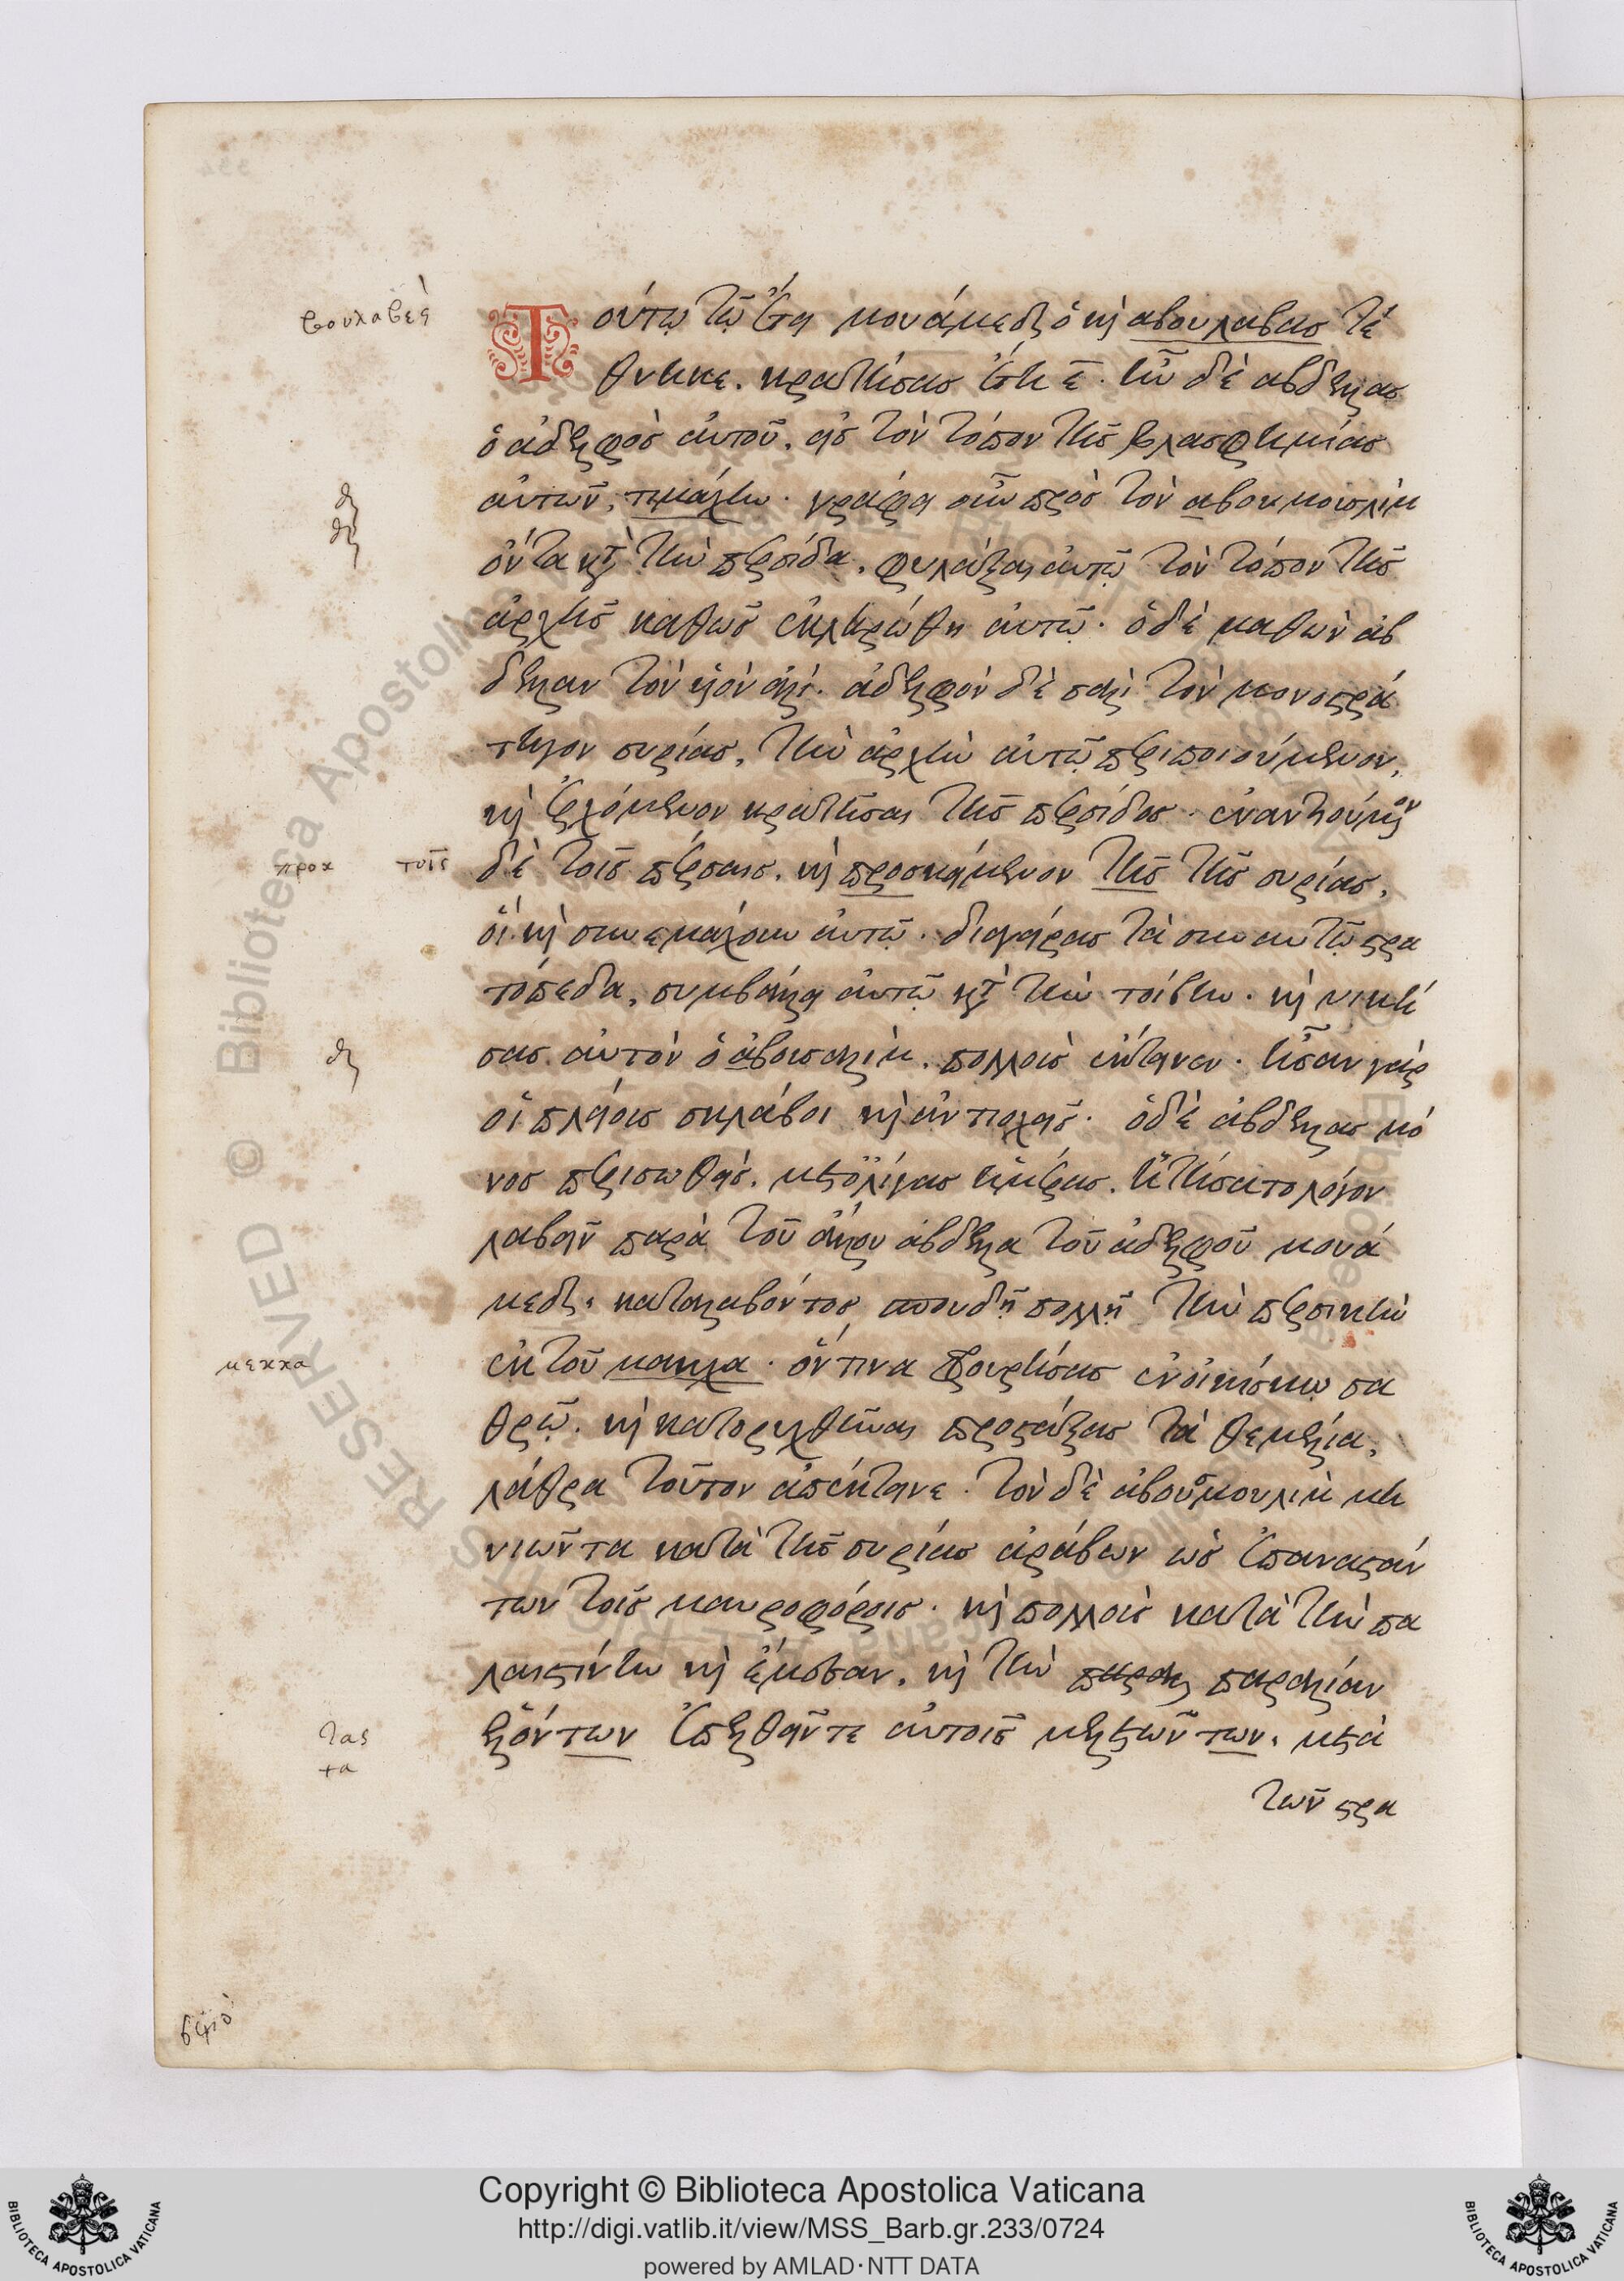 βουλαβες
Τούτῳ τῷ ἔτει μουάμεδ ὁ καὶ αβουλαβας τέ
θνηκε. κρατήσας ἔτη ε. ἦν δὲ αβδελας
ὁ ἀδελφὸς αὐτοῦ, εἰς τὸν τόπον τῆς βλασφημίας
αὐτῶν, τιμάχην. γράφει οὖν πρὸς τὸν αβου μουσλὶμ
ὄντα κατὰ τὴν περσίδα, φυλάξαι αὐτῷ τὸν τόπον τῆς
ἀρχῆς καθὼς ἐκληρώθη αὐτῷ. ὁ δὲ μαθὼν ἀβ
δελαν τὸν υἱὸν ἀλὶ. ἀδελφὸν δὲ σαλὶ τὸν μονοστρά
τηγον συρίας, τὴν ἀρχὴν αὐτῷ περιποιούμενον,
καὶ ἐρχόμενον κρατῆσαι τῆς περσίδος. ἐναντιούμενον
προκ τοῖς
δὲ τοῖς πέρσαις, καὶ προσκείμενον τῆς τῆς συρίας,
οἳ καὶ συνεμάχουν αὐτῷ. διεγείρας τὰ σὺν αυτῷ στρα
τόπεδα, συμβάλλει αὐτῷ κατὰ τὴν τσίβιν. καὶ νική
σας αὐτὸν ὁ ἀβουσαλὶμ, πολλοὺς ἔκτεινεν. ἦσαν γὰρ
οἱ πλείους σκλάβοι καὶ ἀντιοχεῖς. ὁ δὲ ἀβδελας μό
νος περισωθεὶς, μετ᾽ ὀλίγας ἡμέρας, ᾐτήσατο λόγον
λαβεῖν παρὰ τοῦ ἄλλου ἀβδελα τοῦ ἀδελφοῦ μουά
μεδ, καταλαβόντος σπουδῇ πολλῇ τὴν περσικὴν
μεκκα
ἐκ τοῦ μακχα. ὅντινα φρουρήσας ἐν οἰκίσκῳ σα
θρῷ. καὶ κατορυχθῆναι προστάξας τὰ θεμέλια,
λάθρα τοῦτον ἀπέκτεινε. τὸν δὲ ἀβουσμουλὶμ μη
νιῶντα κατὰ τῆς συρίας ἀράβων ὡς ἐπαναστάν
των τοῖς μαυροφόροις. καὶ πολλοὺς κατὰ τὴν πα
λαιστίνην καὶ ἔμεσαν, καὶ τὴν παραλίαν
τας
τα
ἑλόντων ἐπελθεῖν τε αὐτοῖς μελετῶντων, μετὰ
τῶν στρα